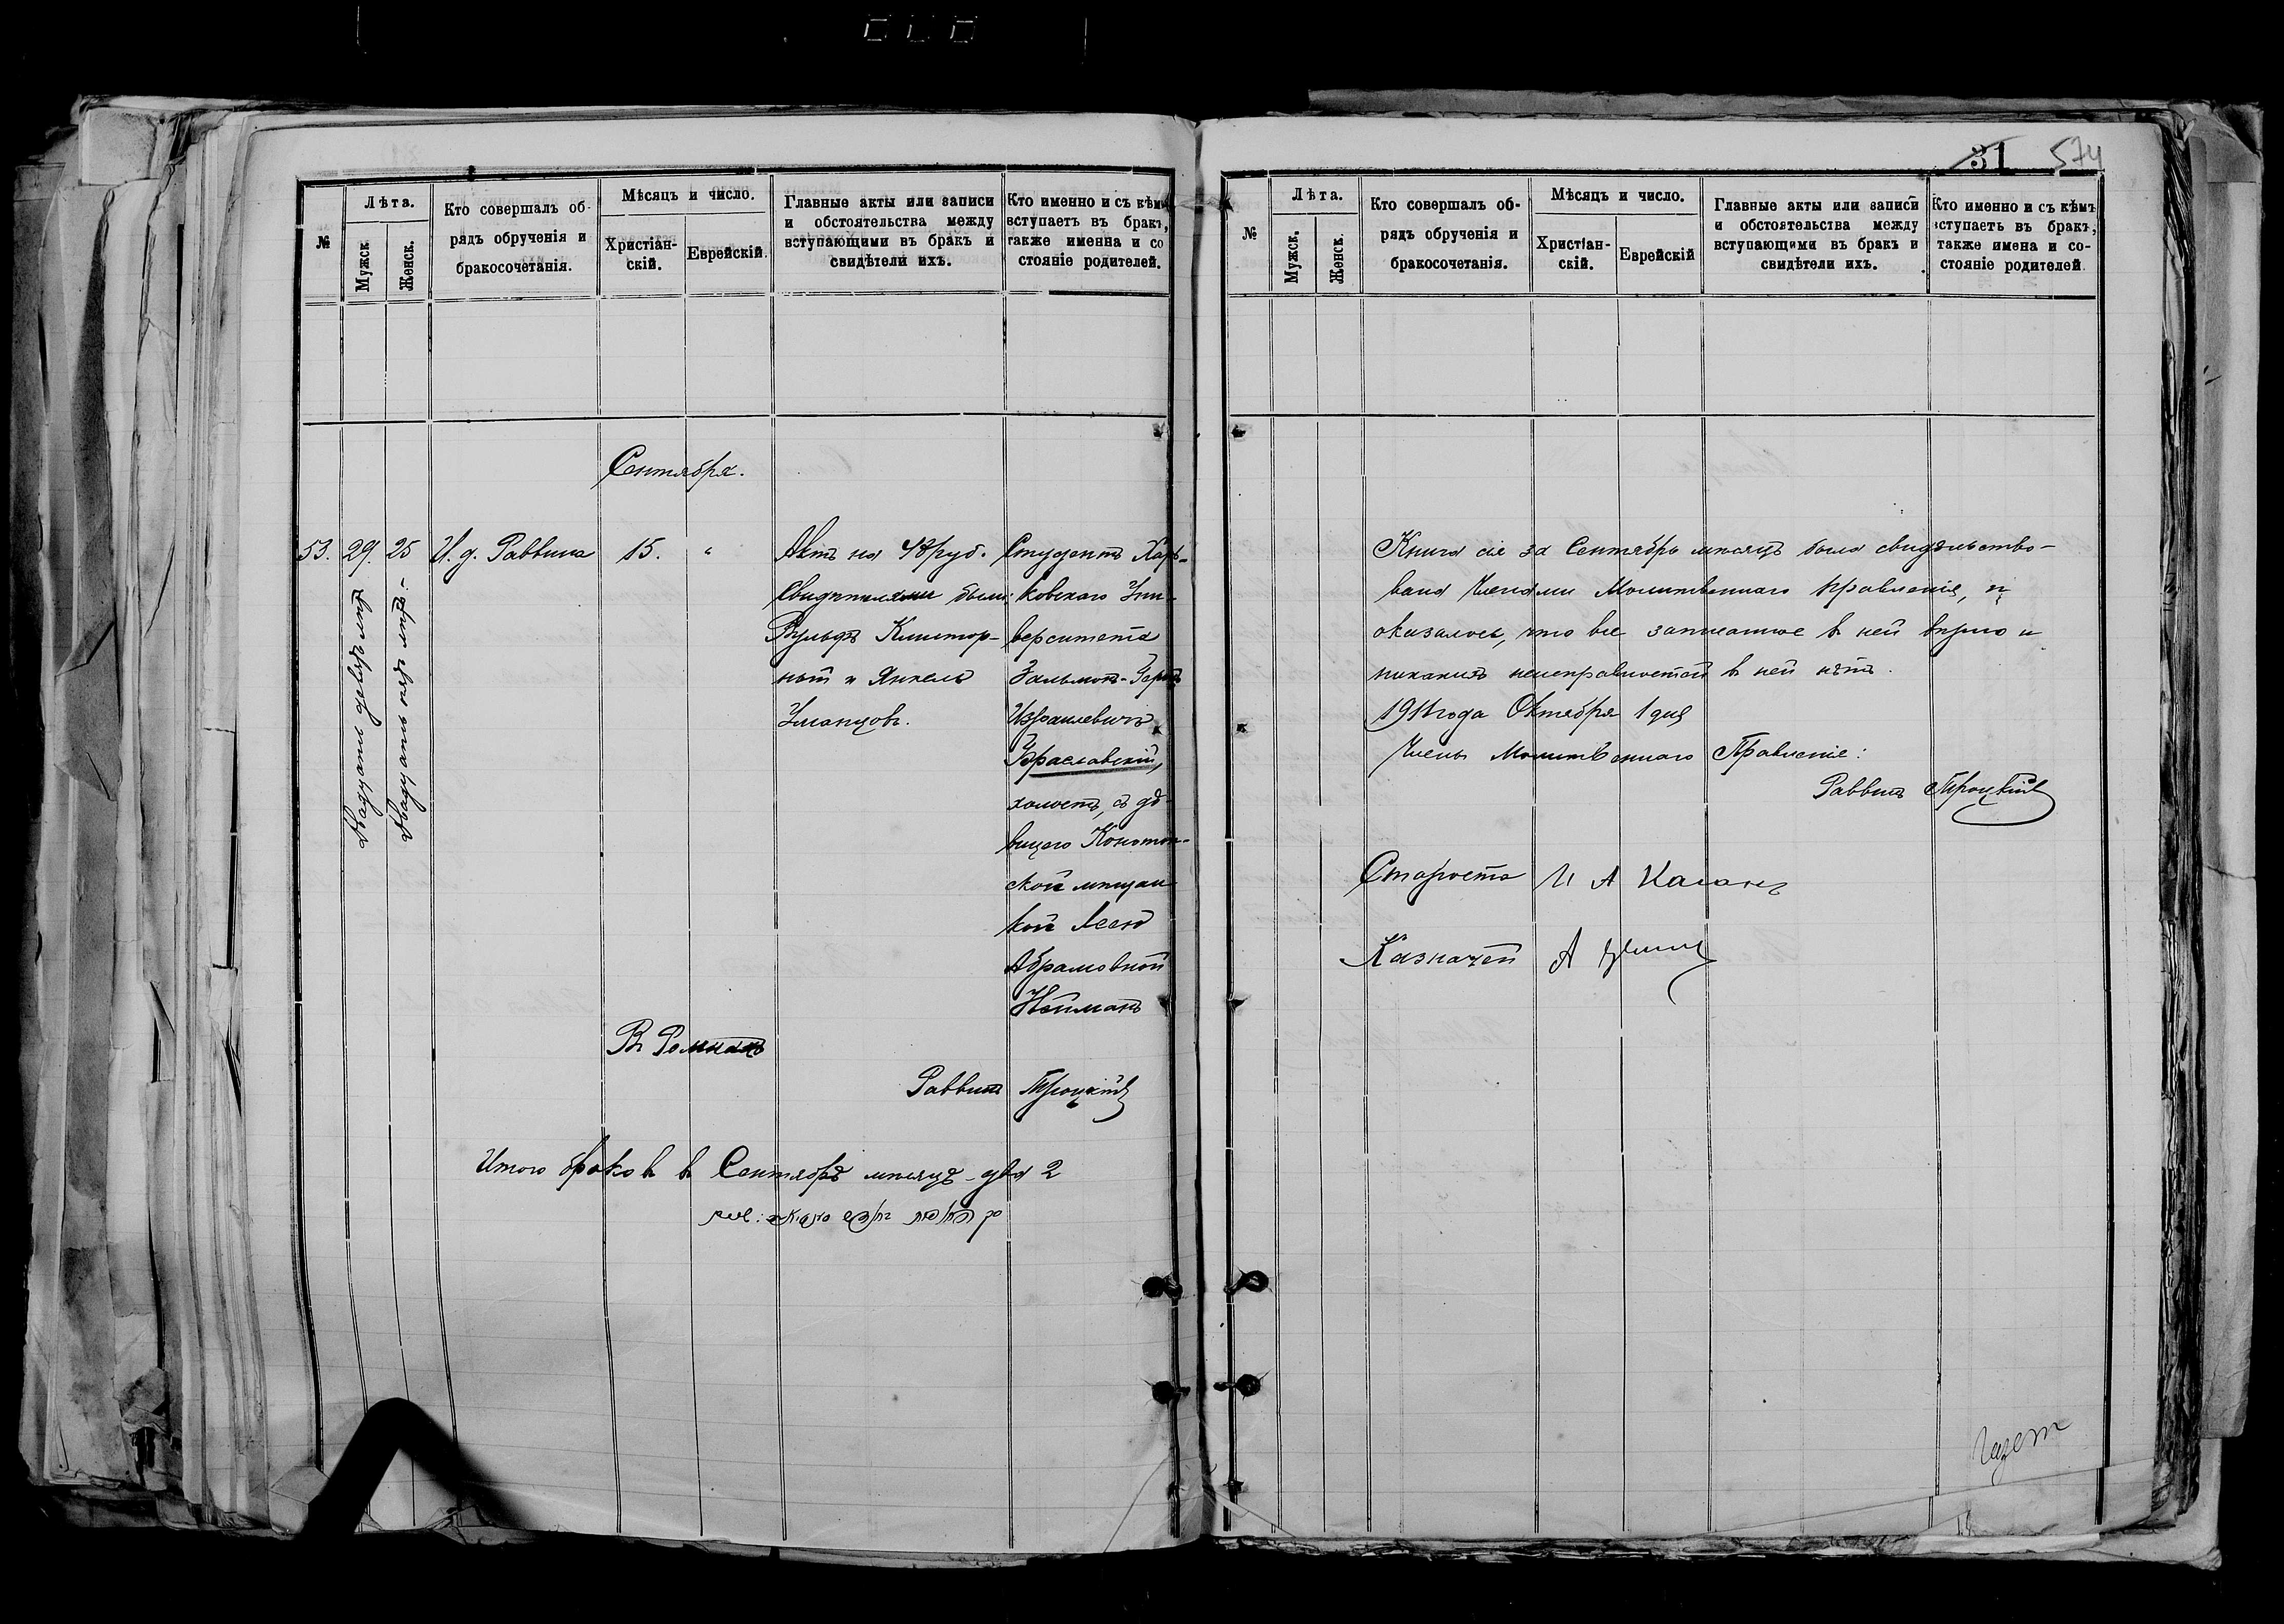 31 574
№
Лѣта.
Мужск.
Женск.
Кто совершалъ об-
рядъ обрученія и
бракосочетанія.
Мѣсяцъ и число.
Христіан-
скій.
Еврейскій.
Главные акты или записи
и обстоятельства между
вступающими въ бракъ и
свидѣтели ихъ.
Кто именно и съ кѣмъ
вступаетъ въ бракъ,
также именна и со
стояніе родителей.
Сентября.
53. 29. 25 И. д. Раввина 15. "
Двадцати девяти лѣтъ
Двадцать пять лѣтъ.
Актъ на 48 руб.
Свидѣтелями были:
Вульфъ Клигтор-
ный и Янкель
Уманцовъ.
Студентъ Харь-
ковскаго Уни-
верситета
Зальмонъ-Герцъ
Израилевичъ
Браславскій,
холостъ, съ дѣ-
вицею Конотоп-
ской мѣщан-
кой Леею
Абрамовной
Нейманъ
Въ Ромнахъ
Раввинъ Троцкій
Итого браковъ въ Сентябрѣ мѣсяцѣ - два 2
№
Лѣта.
Мужск.
Женск.
Кто совершалъ об-
рядъ обрученія и
бракосочетанія.
Мѣсяцъ и число.
Христіан-
скій.
Еврейскій
Главные акты или записи
и обстоятельства между
вступающими въ бракъ и
свидѣтели ихъ.
Кто именно и съ кѣмъ
вступаетъ въ бракъ,
также имена и со-
стояніе родителей
Книга сія за Сентябрь мѣсяцъ была свидѣтельство-
вана Членами Молитвеннаго Правленія, и
оказалось, что все записанное в ней вѣрно и
никакихъ неисправностей в ней нѣтъ.
1911 года Октября 1 дня
Члены Молитвеннаго Правленіе:
Раввинъ Троцкій
Староста И А Каганъ
Казначей А